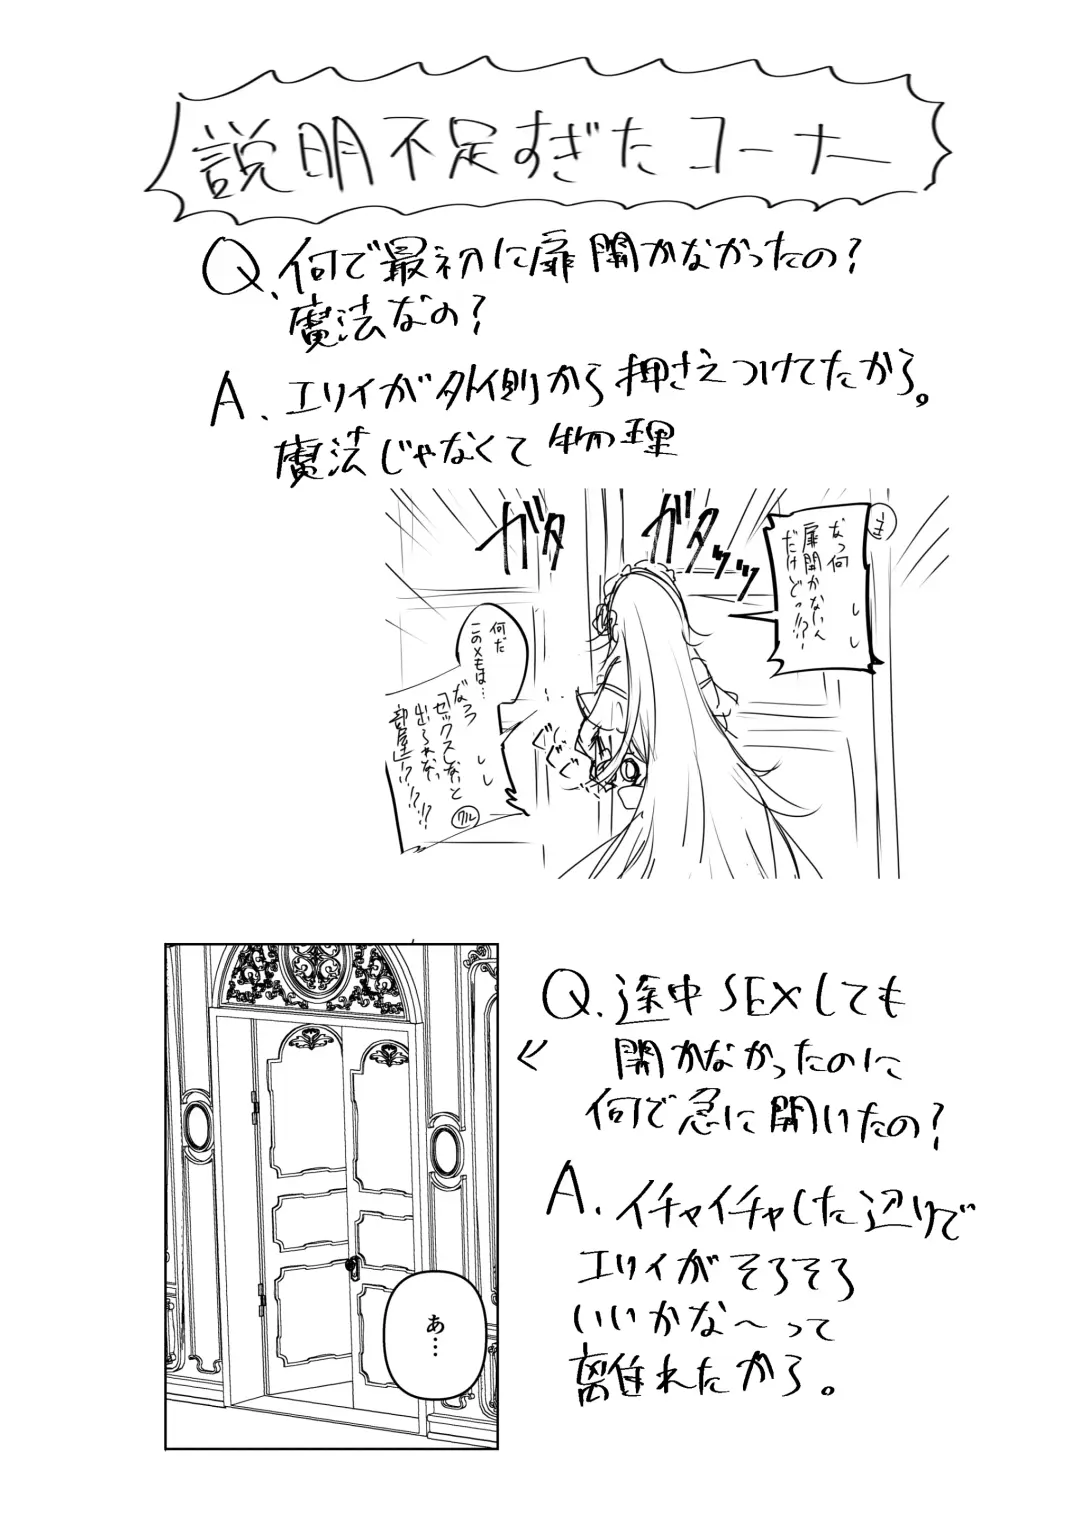 説明不足すぎたコーナー
Q.何で最初に扉開かなかったの?
魔法なの?
A.エリィが外側から押さえつけてたから。
魔法じゃなくて物理
ガタ
ガタッッ
ま
なっ何
扉開かないん
だけどっ!?
何だ
このメモは…
なっっ
「セックスしないと
出られない
部屋」!?!?!?
クル
ぐぐぐ
Q.途中SEXしても
開かなかったのに
何で急に開いたの?
A.イチャイチャした辺りで
エリィがそろそろ
いいかな〜って
離れたから。
あ…